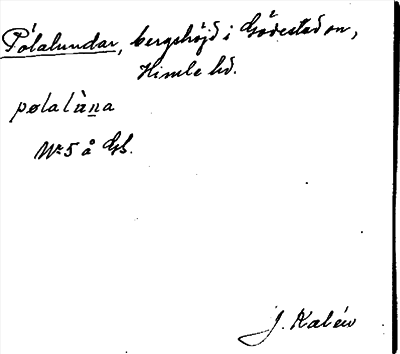 Pålalundar, bergshöjd i Gödestad sn,
Himle hd.
pølalùna
Nr 5 å GS.
J. Kalén